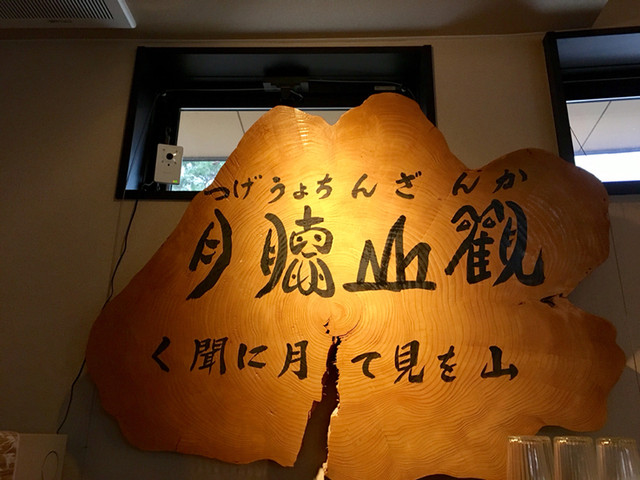 かんざんちょうげつ
觀山聴月
山を見て月に聞く